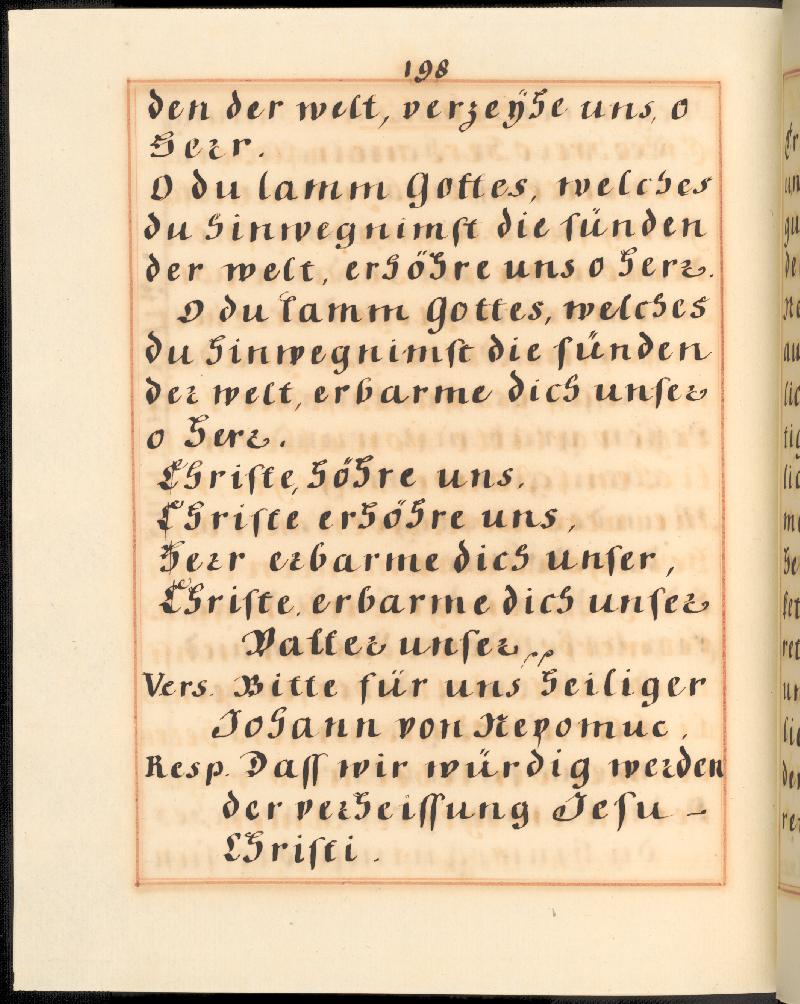 198
den der welt, verzeÿhe uns, o
Herr.
O du lamm Gottes, welches
du hinwegnimſt die ſünden
der welt, erhöhre uns o Herr.
O du lamm Gottes, welches
du hinwegnimſt die ſünden
der welt, erbarme dich unſer
o Herr.
Chriſte, höhre uns.
Chriſte erhöhre uns,
Herr erbarme dich unſer,
Chriſte, erbarme dich unſer
Vatter unſer
Vers. Bitte für uns heiliger
Johann von Nepomuc.
Resp. Daſſ wir würdig werden
der verheiſſung Jeſu –
Chriſti.